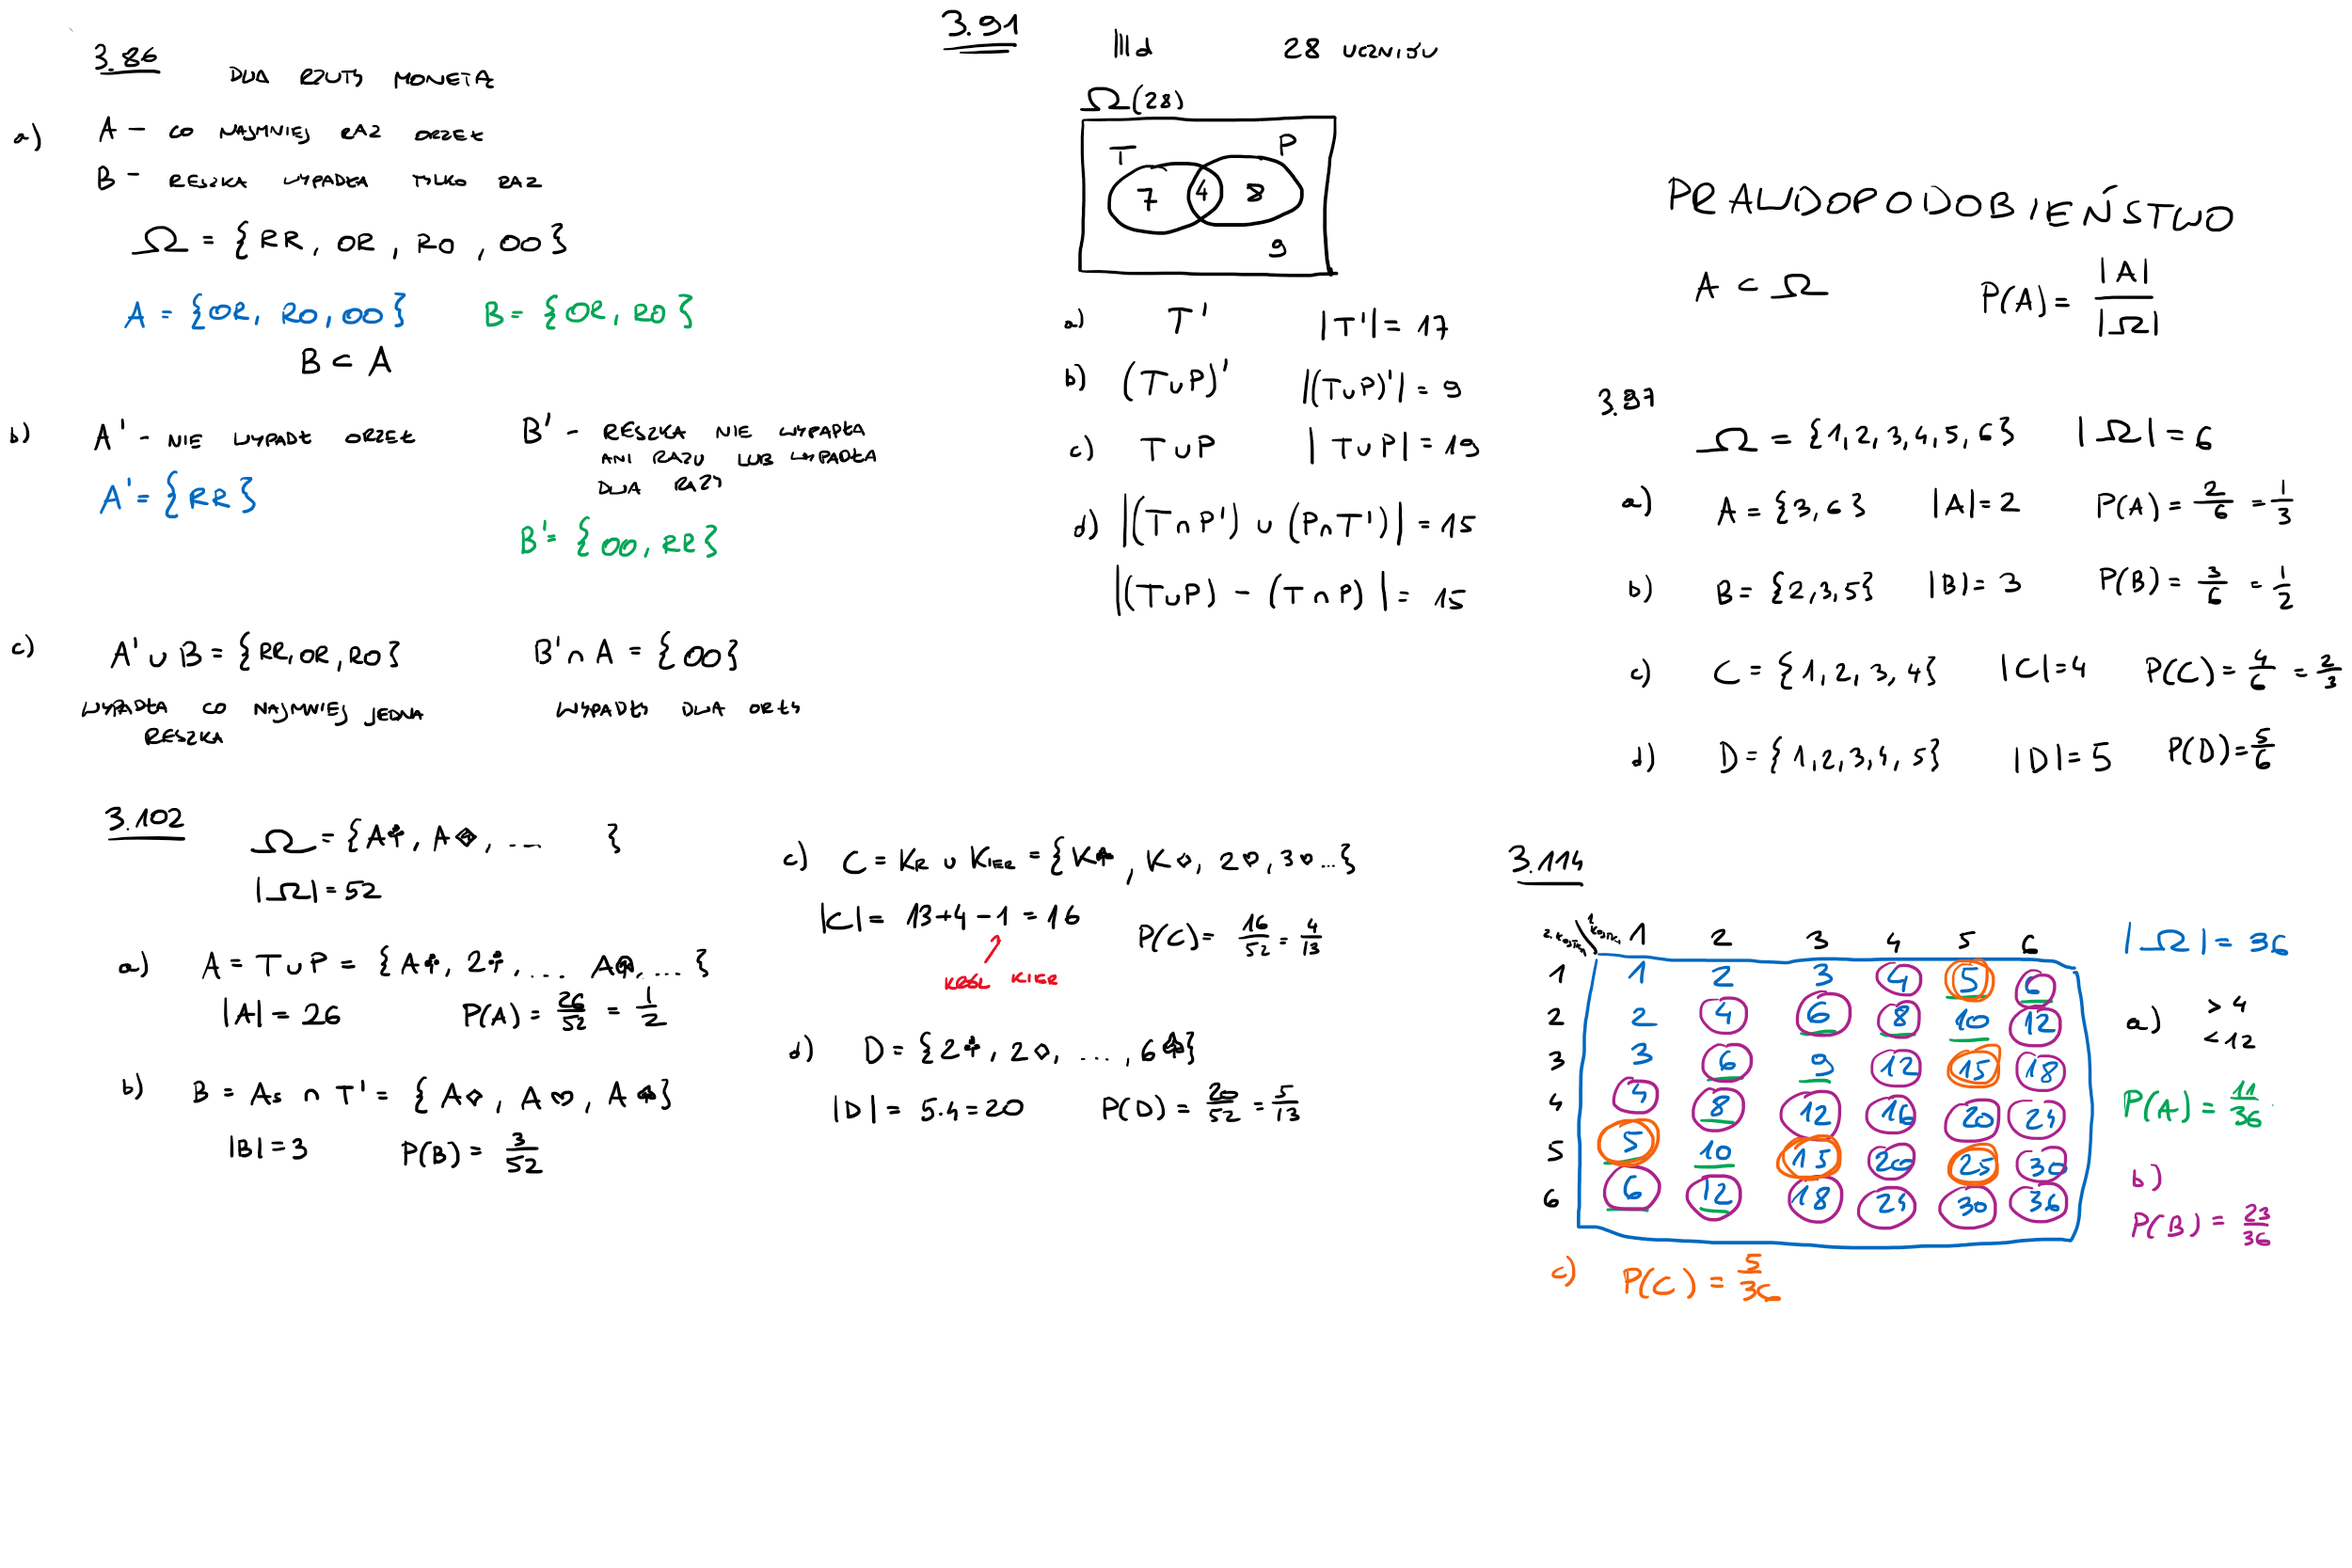 3.86
DWA RZUTY MONETĄ
a) A – CO NAJMNIEJ RAZ ORZEŁ
B – RESZKA WYPADŁA TYLKO RAZ
Ω = {RR, OR, RO, OO}
A = {OR, RO, OO} B = {OR, RO}
B ⊂ A
b) A' - NIE WYPADŁ ORZEŁ
A' = {RR}
B' - RESZKA NIE WYPADŁA
ANI RAZU LUB WYPADŁA
DWA RAZY
B' = {OO, RR}
c) A' ∪ B = {RR, OR, RO}
WYPADŁA CO NAJMNIEJ JEDNA
RESZKA
B' ∩ A = {OO}
WYPADŁY DWA ORŁY
3.91
IIId 28 UCZNIÓW
Ω (28)
T P
7 4 8
9
a) T' |T'| = 17
b) (T∪P)' |(T∪P)'| = 9
c) T∪P |T∪P| = 19
d) |(T∩P') ∪ (P∩T')| = 15
|(T∪P) – (T∩P)| = 15
PRAWDOPODOBIEŃSTWO
A ⊂ Ω P(A) = |A| / |Ω|
3.97
Ω = {1, 2, 3, 4, 5, 6} |Ω| = 6
a) A = {3, 6} |A| = 2 P(A) = 2/6 = 1/3
b) B = {2, 3, 5} |B| = 3 P(B) = 3/6 = 1/2
c) C = {1, 2, 3, 4} |C| = 4 P(C) = 4/6 = 2/3
d) D = {1, 2, 3, 4, 5} |D| = 5 P(D) = 5/6
3.102
Ω = {A♣, A♦, .... }
|Ω| = 52
a) A = T∪P = {A♣, 2♣, ... A♠, ...}
|A| = 26 P(A) = 26/52 = 1/2
b) B = As ∩ T' = {A♦, A♥, A♠}
|B| = 3 P(B) = 3/52
c) C = KR ∪ KIER = {K♠, K♦, 2♥, 3♥...}
|C| = 13+4–1 = 16 P(C) = 16/52 = 4/13
KRÓL KIER
d) D = {2♣, 2♦, ..., 6♠}
|D| = 5·4 = 20 P(D) = 20/52 = 5/13
3.114
2. KOSTKA \ 1. KOSTKA 1 2 3 4 5 6
1 1 2 3 4 5 6
2 2 4 6 8 10 12
3 3 6 9 12 15 18
4 4 8 12 16 20 24
5 5 10 15 20 25 30
6 6 12 18 24 30 36
|Ω| = 36
a) > 4
< 12
P(A) = 11/36
b)
P(B) = 23/36
c) P(C) = 5/36